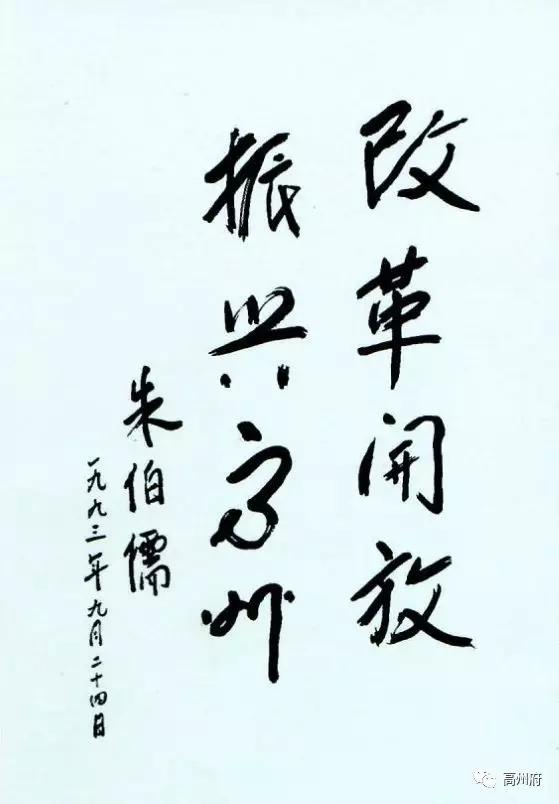 改革开放
振兴高州
朱伯儒
一九九三年九月二十四日
高州府